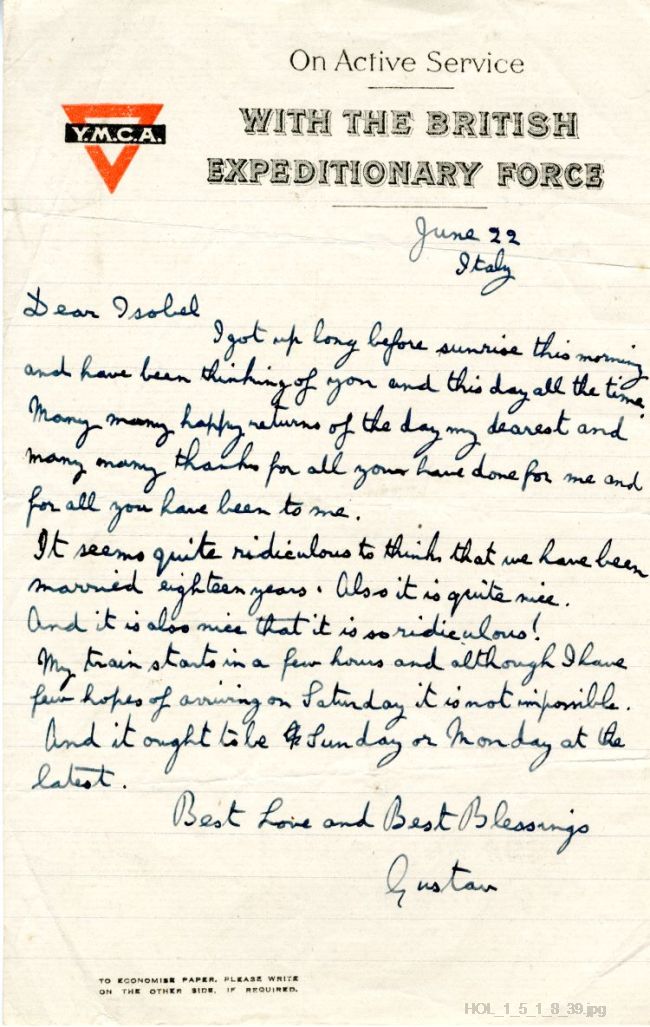 On Active Service
WITH THE BRITISH
EXPEDITIONARY FORCE
Y.M.C.A.
June 22
Italy
Dear Isobel
I got up long before sunrise this morning
and have been thinking of you and this day all the time.
Many many happy returns of the day my dearest and
many many thanks for all you have done for me and
for all you have been to me.
It seems quite ridiculous to think that we have been
married eighteen years. Also it is quite nice.
And it is also nice that it is so ridiculous!
My train starts in a few hours and although I have
few hopes of arriving on Saturday it is not impossible.
And it ought to be Sunday or Monday at the
latest.
Best Love and Best Blessings
Gustav
TO ECONOMISE PAPER, PLEASE WRITE
ON THE OTHER SIDE, IF REQUIRED.
HOL_1_5_1_8_39.jpg